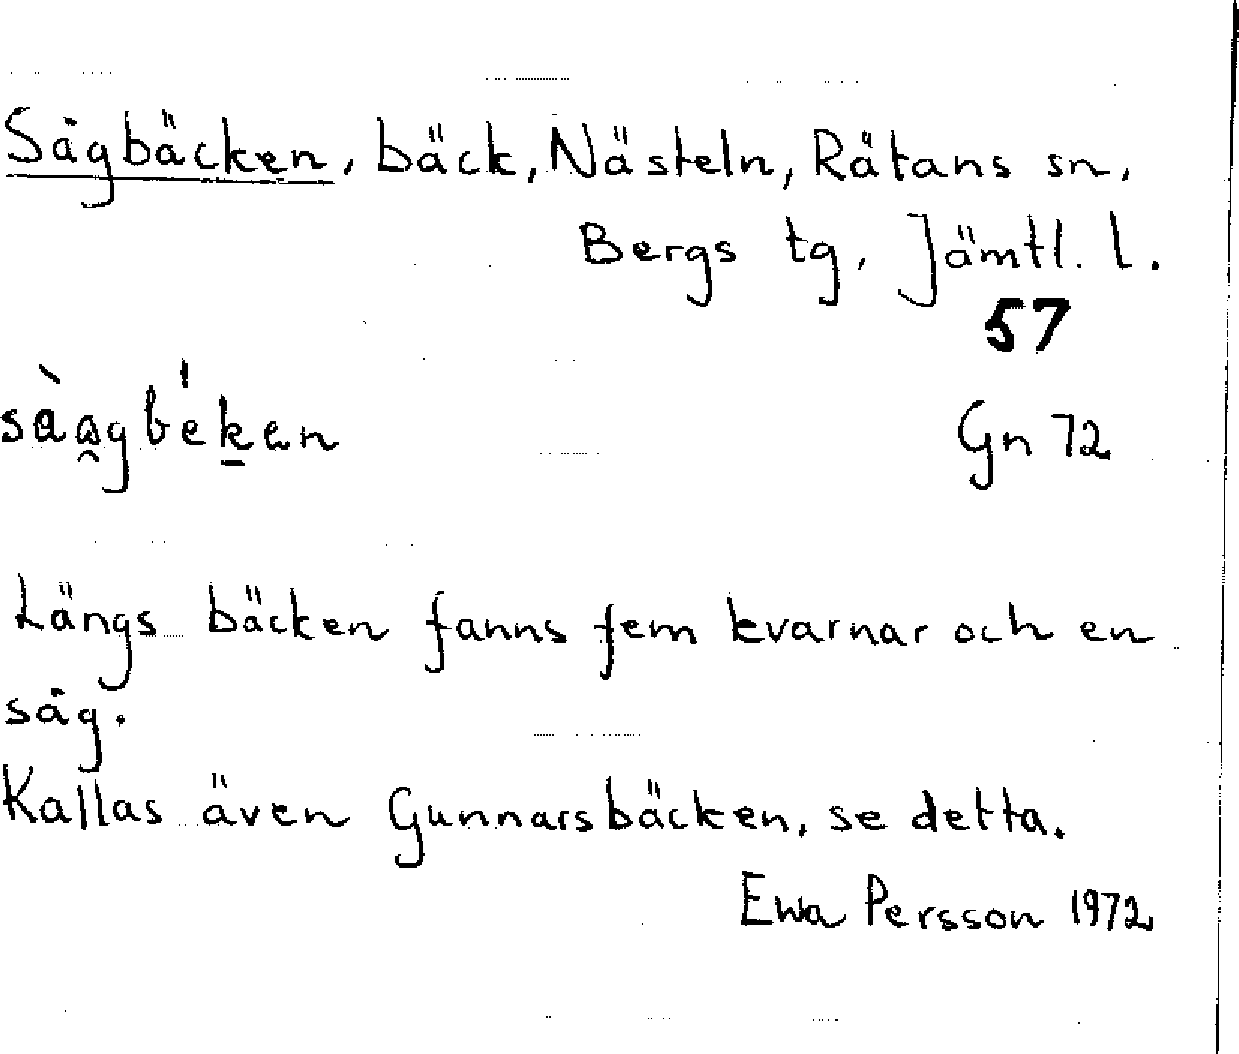 Sågbäcken, bäck, Nästeln, Råtans sn,
Bergs tg, Jämtl. l.
57
Gn 72
Längs bäcken fanns fem kvarnar och en
såg.
Kallas även Gunnarsbäcken, se detta.
Ewa Persson 1972